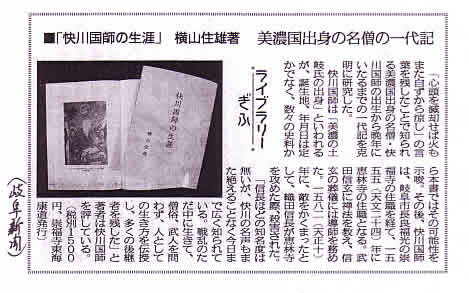 ■「快川国師の生涯」 横山住雄著 美濃国出身の名僧の一代記
「心頭を滅却せば火も
また自ずから涼し」の言
葉を残したことで知られ
る美濃国出身の名僧・快
川国師の出生から晩年に
いたるまでの一代記を克
明に研究した。
快川国師は「美濃の土
岐氏の出身」といわれる
が、誕生地、年月日は定
かでなく、数々の史料か
ら本書ではその可能性を
示唆。その後、快川国師
は、岐阜市長良福光の崇
福寺の住職を経て、一五
五五（天文二十四）年に
恵林寺の住職となる。武
田信玄に禅法を教え、信
玄の葬儀には導師を務め
た。一五八二（天正十）
年に、敵をかくまったと
して、織田信長が恵林寺
を攻めた際、殺害された。
「信長ほどの知名度は
無いが、快川の名声もま
た絶えることなく今日ま
で広く知られて
いる。戦乱のた
だ中に生きて、
僧俗、武人を問
わず、人として
の生き方を伝授
し、多くの後継
者を残した」と
著者は快川国師
を評している。
（税別1500
円、崇福寺東海
康道発行）
ライブラリー
ぎふ
快川国師の生涯
横山住雄
（岐阜新聞）